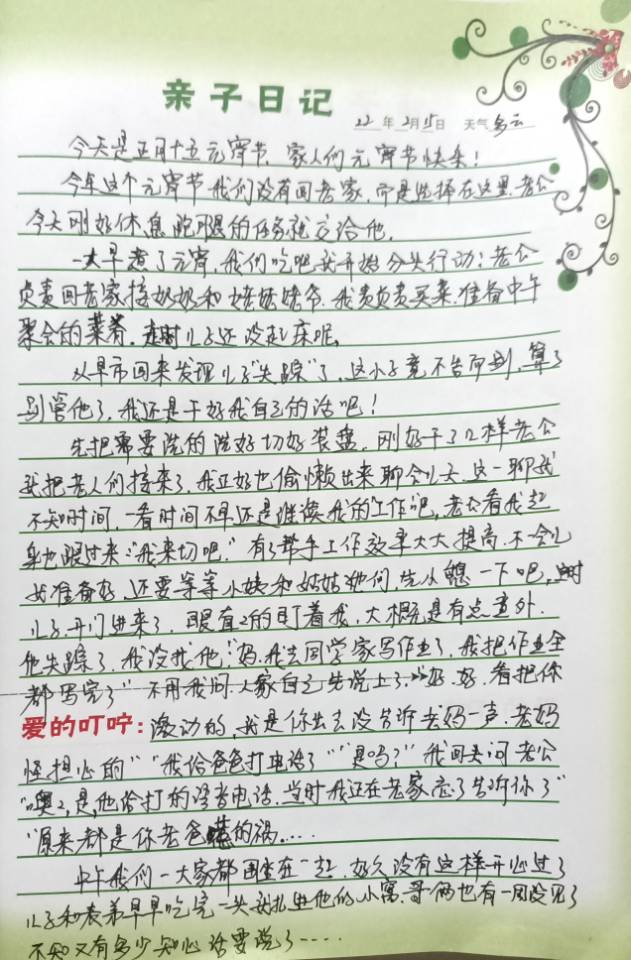 亲子日记
22年2月15日 天气多云
今天是正月十五元宵节，家人们元宵节快乐！
今年这个元宵节我们没有回老家，而是选择在这里，老公
今天刚好休息跑腿的任务就交给他。
一大早煮了元宵，我们吃吧就开始分头行动：老公
负责回老家接奶奶和姥姥姥爷，我负责买菜，准备中午
聚会的菜肴，走时儿子还没起床呢。
从早市回来发现儿子“失踪”了，这小子竟不告而别，算了
别管他了，我还是干好我自己的活吧！
先把需要洗的洗好切好装盘，刚好干了几样老公
就把老人们接来了，我正好也偷懒出来聊会儿天，这一聊就
不知时间，一看时间不早还是继续我的工作吧，老公看我起
身也跟过来：“我来切吧。”有了帮手工作效率大大提高，不一会儿
就准备好，还要等等小姨和姑姑她们，先小憩一下吧，此时
儿子开门进来了，眼直2的盯着我，大概是有点意外，
他失踪了，我没找他：“妈，我去同学家写作业了，我把作业全
都写完了”不用我问，人家自己先说上了，“好，好，看把你
爱的叮咛：激动的，就是你出去没告诉老妈一声，老妈
怪担心的”“我给爸爸打电话了”“是吗？”我回头问老公
“噢2，是，他给打的语音电话，当时我还在老家忘了告诉你了”
“原来都是你老爸惹的祸……
中午我们一大家都围坐在一起，好久没有这样开心过了
儿子和表弟早早吃完一头就扎进他的小窝，哥俩也有一周没见了
不知又有多少知心话要说了……